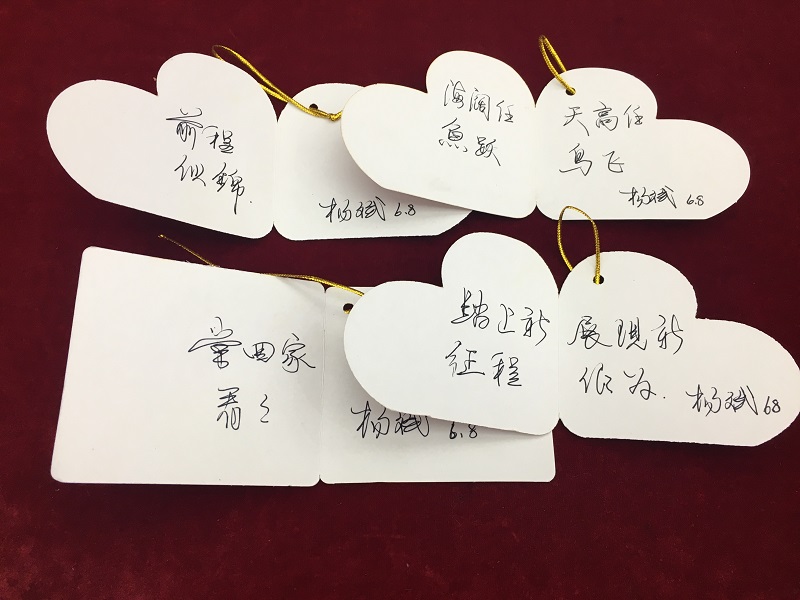 前程
似锦.
杨斌 6.8
海阔任
鱼跃
天高任
鸟飞
杨斌 6.8
常回家
看之
杨斌 6.8
踏上新
征程
展现新
作为.
杨斌 68